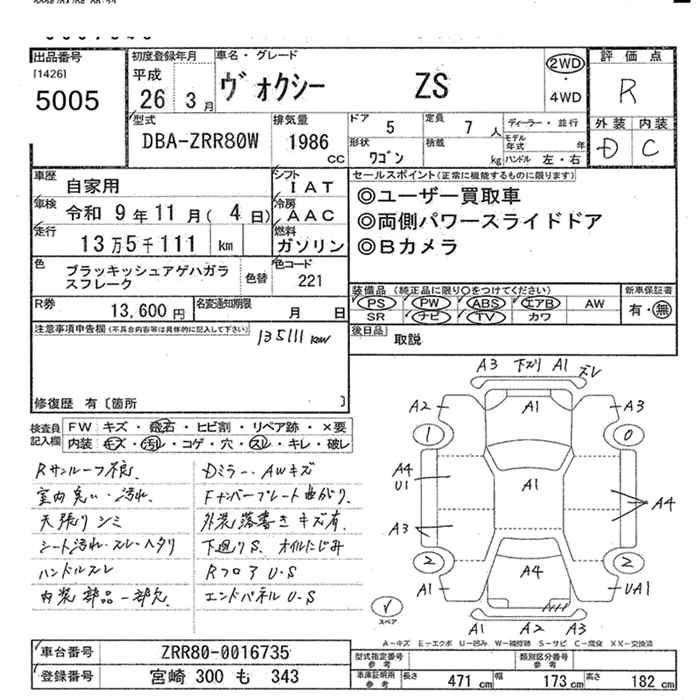 出品番号
[1426]
5005
初度登録年月
平成
26 3月
車名・グレード
ヴォクシー ZS
2WD
・
4WD
評価点
R
外装 内装
D C
型式
DBA-ZRR80W
排気量
1986
CC
ドア 5
定員 7 人
形状 ワゴン
積載 kg
ディーラー・並行
モデル年式 年
ハンドル 左・右
車歴
自家用
車検 令和 9年11月(4日)
走行
13万5千111 km
シフト
IAT
冷房
AAC
燃料
ガソリン
セールスポイント(正常に機能するものに限ります)
◎ユーザー買取車
◎両側パワースライドドア
◎Bカメラ
色
ブラッキッシュアゲハガラスフレーク
色替
色コード
221
R券
13,600 円
名変通知期限
月 日
装備品 (純正品に限り○をつけてください)
PS PW ABS エアB AW
SR ナビ TV カワ
新車保証書
有・無
後日品 取説
注意事項申告欄(不具合内容等は具体的に記入して下さい)
135111 km
修復歴 有〔箇所 〕
検査員記入欄
FW キズ・飛石・ヒビ割・リペア跡・×要
内装 キズ・汚れ・コゲ・穴・スレ・キレ・破レ
Rサンルーフ不良、
室内臭い・汚れ、
天張りシミ
シート汚れ・スレ・ヘタリ
ハンドルスレ
内装部品一部欠
Dミラー、AWキズ
Fナンバープレート曲がり、
外装落書きキズ有、
下廻りS、オイルにじみ
Rフロア U・S
エンドパネル U・S
A3 下ズリ A1 ズレ
A2 A1 A3
1 0
A4
U1
A1
A4
A3
2 2
A1 A4 UA1
スペア
A1 A2 A3
A-キズ E-エクボ U-凹み W-補修跡 S-サビ C-腐食 XX-交換済
車台番号 ZRR80-0016735
登録番号 宮崎 300 も 343
型式指定番号
参考
類別区分番号
参考
車庫証明用
参考
長さ 471 cm 幅 173 cm 高さ 182 cm